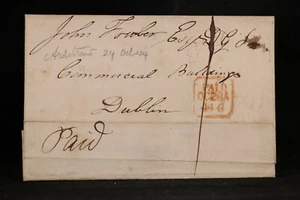 John Fowler Esq
Ardstraw 24 Oct 44
Commercial Buildings
Dublin
Paid
PAID